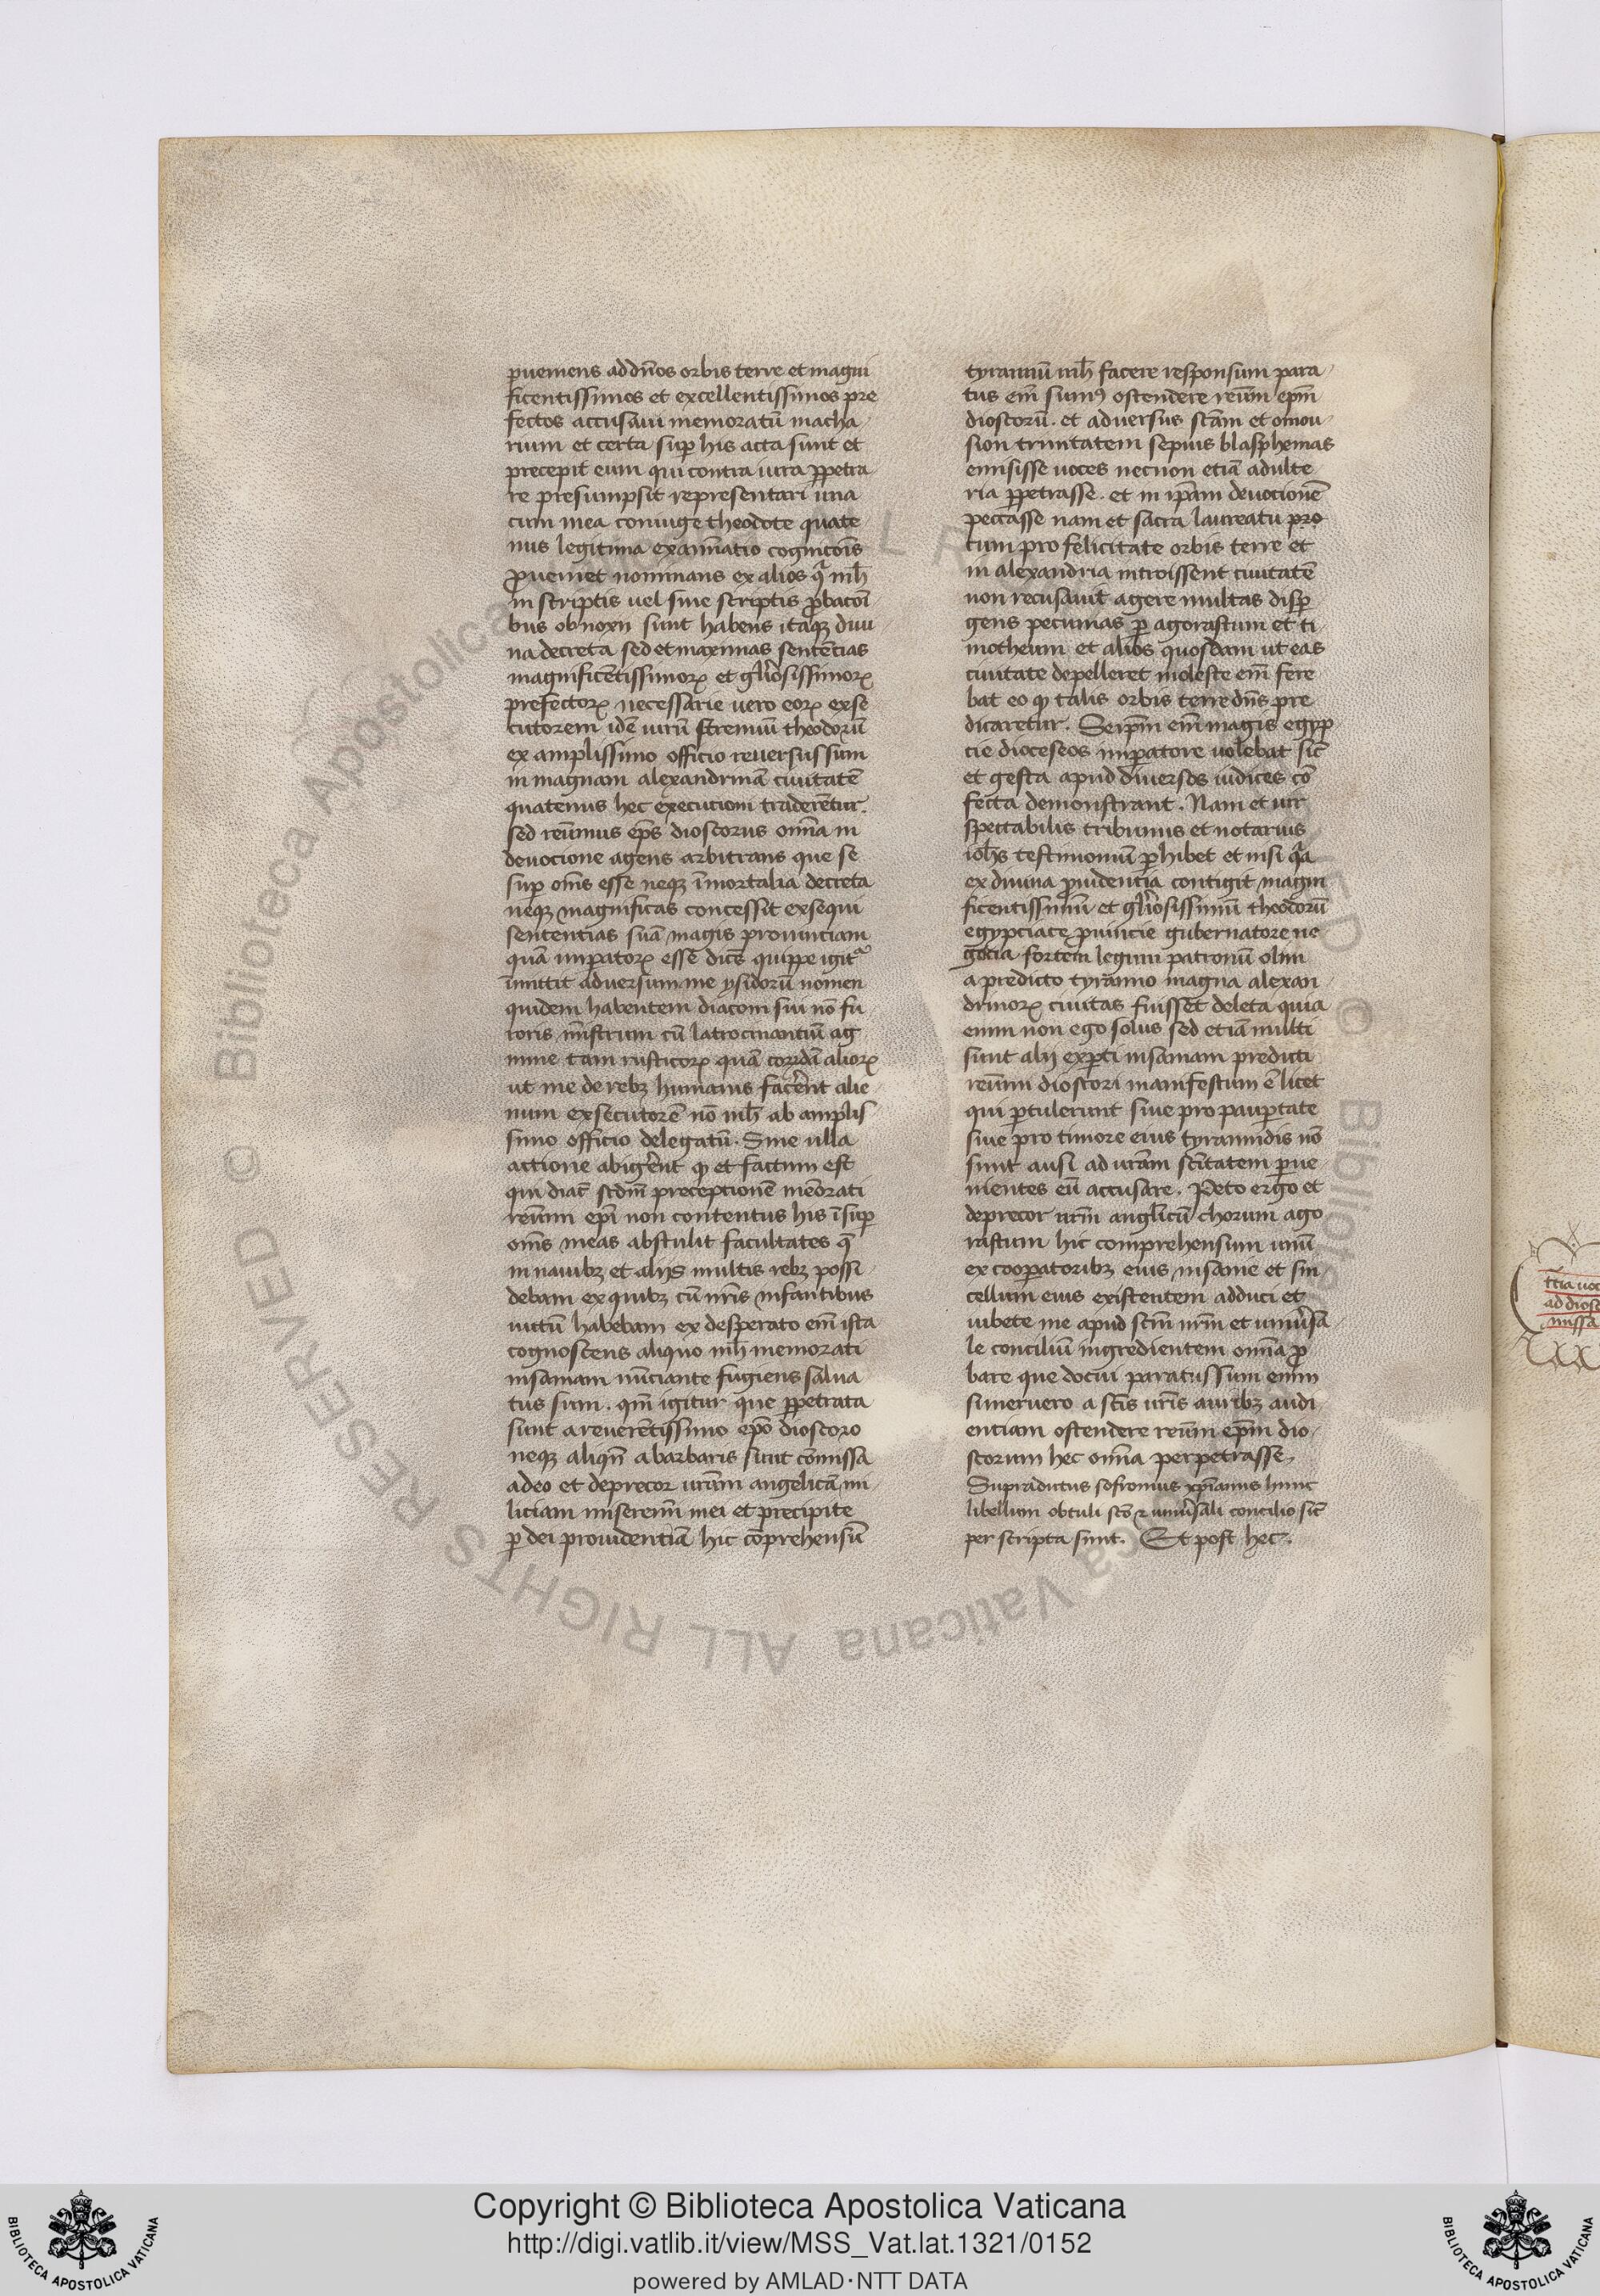 ꝑueniens ad dn̄os orbis terre et magni
ficentissimos et excellentissimos pre
fectos accusaui memoratū macha
rium et certa suꝑ his acta sunt et
precepit eum qui contra iura ꝑpetra
re presumpsit representari una
cum mea coniuge theodote quate
nus legitima examīatio cognicoīs
ꝓueniet nominans ex alios qͣ mh̄
in scriptis uel sine scriptis ꝓbacoī
bus obnoxii sunt habens itaqꝫ diui
na decreta sed et maximas sentēcias
magnificētissimoꝝ et gl̄iosissimoꝝ
prefectoꝝ necessarie uero eoꝝ exse
cutorem idē uirū strenuū theodorū
ex amplissimo officio reuersus sum
in magnam alexandrinā ciuitatē
quatenus hec execucioni traderētur.
sed reūmus ep̄s dioscorus om̄ia in
deuocione agens arbitrans que se
suꝑ om̄s esse neqꝫ īmortalia decreta
neqꝫ magnificas concessit exsequi
sentencias suā magis pronunciam
quā impatoꝝ esse dicēs quippe igitͬ
īmittit aduersum me ysidorū nomen
quidem habentem diaconi sui nō fu
roris mīstrum cū latrocinantiū ag
mine tam rusticoꝝ quā corrdā alioꝝ
ut me de rebꝫ humanis facērent alie
num exsecutorē nō mh̄ ab amplis
simo officio delegatū. Sine ulla
actione abigērent qꝫ et factum est
qui diac̄ scdm̄ preceptionē meōrati
reūmi epī non contentus his īsuꝑ
om̄s meas abstulit facultates q̄
in nauibꝫ et alijs multis rebꝫ possi
debam ex quibꝫ cū nr̄is infantibus
uictū habebam ex desperato em̄ ista
cognoscens aliquo mh̄ memorati
insaniam nūciante fugiens salua
tus sum. qm̄ igitur que ꝑpetrata
sunt a reuerētissimo epō dioscoro
neqꝫ aliqn̄ a barbaris sunt cōmissa
adeo et deprecor urām angelicā mi
liciam miseremī mei et precipite
ꝑ dei prouidentiā hic cōprehensū
tyrannū mh̄ facere responsum para
tus em̄ sumꝰ ostendere reūm epm̄
dioscorū. et aduersus scām et omou
sion trinitatem sepius blasphemas
emisisse uoces necnon etiā adulte
ria ꝑpetrasse. et in ipām deuocionē
peccasse nam et sacra laureatu pro
cum pro felicitate orbis terre et
in alexandria introissent ciuitatē
non recusauit agere multas disꝑ
gens pecunias ꝑ agorastum et ti
motheum et alios quosdam ut eas
ciuitate depelleret moleste em̄ fere
bat eo qꝫ talis orbis terre dn̄s pre
dicaretur. Seipm̄ em̄ magis egyp
cie dioceseos imꝑatore uolebat sic̄
et gesta apud diuersos iudices cō
fecta demonstrant. Nam et uir
spectabilis tribunus et notarius
ioh̄s testimoniū ꝑhibet et nisi qͣ
ex diuina ꝓuidentia contigit magni
ficentissimū et gl̄iosissimū theodorū
egypciace ꝓuincie gubernatore ne
gocia fortem legum patronū olim
a predicto tyranno magna alexan
drinoꝝ ciuitas fuisset deleta quia
enim non ego solus sed etiā multi
sunt alij exꝑti insaniam predicti
reūmi dioscori manifestum ē licet
qui ꝑtulerunt siue pro pauꝑtate
siue pro timore eius tyrannidis nō
sunt ausi ad urām scītatem ꝑue
nientes eū accusare. Peto ergo et
deprecor urm̄ angl̄icū chorum ago
rastum hic comprehensum unū
ex cooꝑatoribꝫ eius insanie et sin
cellum eius existentem adduci et
iubete me apud scm̄ urm̄ et uniuˀsa
le conciliū ingredientem om̄ia ꝓ
bare que docui paratus sum enim
si meruero a scīs ur̄is auribꝫ audi
entiam ostendere reūm epm̄ dio
scorum hec om̄ia perpetrasse.
Supradictus sofronius xpīanus hunc
libellum obtuli scō ⁊ uniuˀsali concilio sic̄
per scripta sunt. Et post hec.
tc̄ia uoc
ad diosc
missa
© Biblioteca Apostolica Vaticana ALL RIGHTS RESERVED
Copyright © Biblioteca Apostolica Vaticana
http://digi.vatlib.it/view/MSS_Vat.lat.1321/0152
powered by AMLAD·NTT DATA
BIBLIOTECA APOSTOLICA VATICANA
BIBLIOTECA APOSTOLICA VATICANA